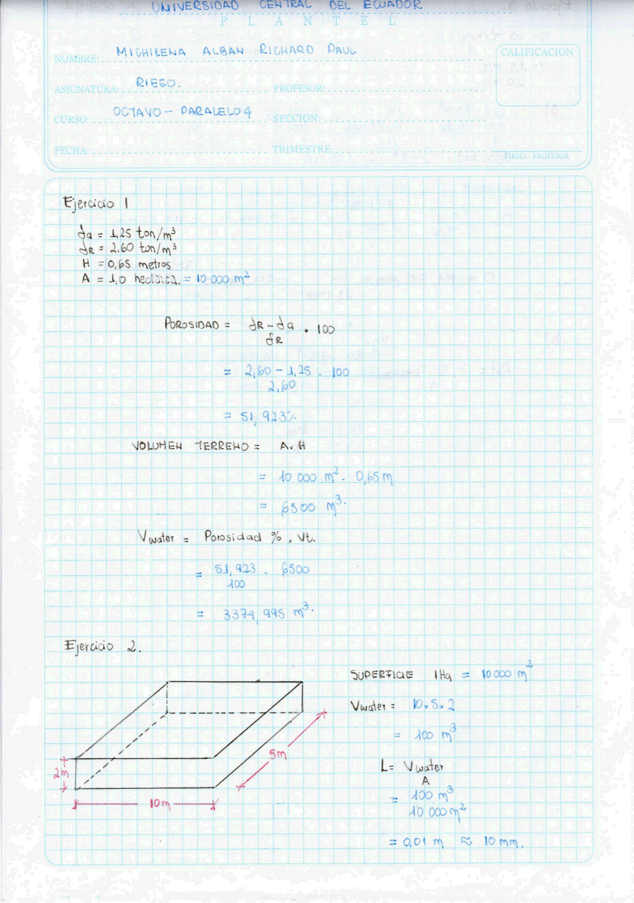 UNIVERSIDAD CENTRAL DEL ECUADOR
PLANTEL
NOMBRE: MICHILENA ALBAN RICHARD PAUL
CALIFICACION
ASIGNATURA: RIEGO. PROFESOR:
CURSO: OCTAVO - PARALELO 4 SECCION:
FECHA: TRIMESTRE:
FIRMA - PROFESOR
Ejercicio 1
da = 1,25 ton/m³
dR = 2.60 ton/m³
H = 0,65 metros
A = 1,0 hectárea. = 10 000 m²
POROSIDAD = dR - da . 100
dR
= 2,60 - 1,25 . 100
2,60
= 51,923%.
VOLUMEN TERRENO = A. H
= 10 000 m² . 0,65 m
= 6500 m³.
Vwater = Porosidad % . Vt.
= 51,923 . 6500
100
= 3374,995 m³.
Ejercicio 2.
SUPERFICIE 1Ha = 10 000 m²
Vwater = 10.5.2
= 100 m³
L = Vwater
A
= 100 m³
10 000 m²
= 0,01 m ≈ 10 mm.
2m
5m
10m